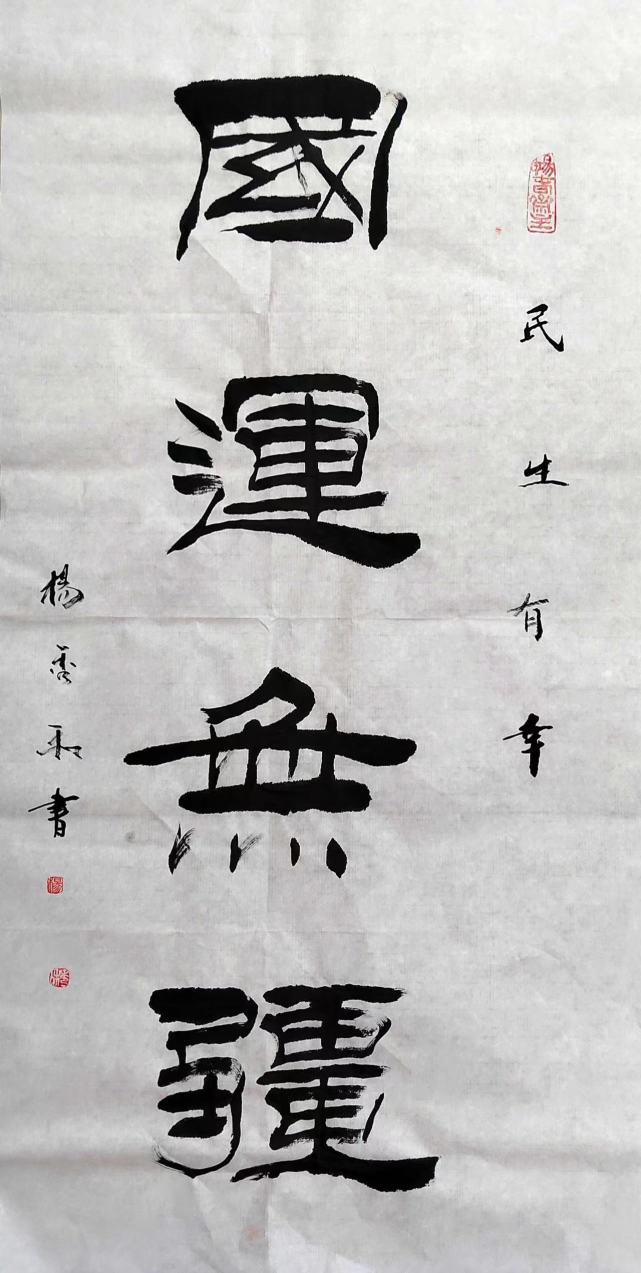 民生有幸
國運無疆
楊秀和書